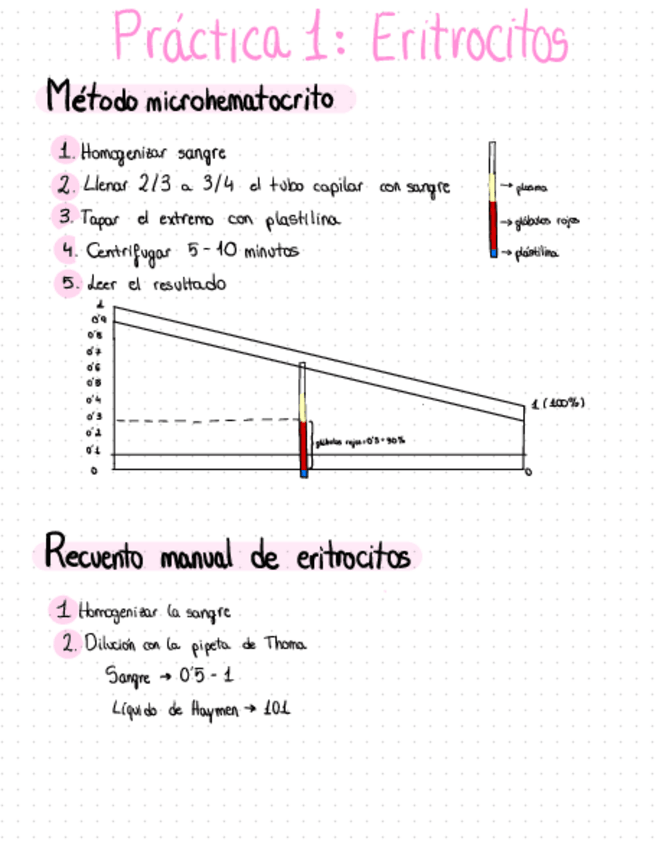 Práctica 1: Eritrocitos
Método microhematocrito
1. Homogenizar sangre
2. Llenar 2/3 a 3/4 el tubo capilar con sangre
3. Tapar el extremo con plastilina
4. Centrifugar 5-10 minutos
5. Leer el resultado
→ plasma
→ glóbulos rojos
→ plastilina
1
0'9
0'8
0'7
0'6
0'5
0'4
0'3
0'2
0'1
0
1 (100%)
0
glóbulos rojos=0'3=30%
Recuento manual de eritrocitos
1 Homogenizar la sangre
2. Dilución con la pipeta de Thoma
Sangre → 0'5 - 1
Líquido de Haymen → 101